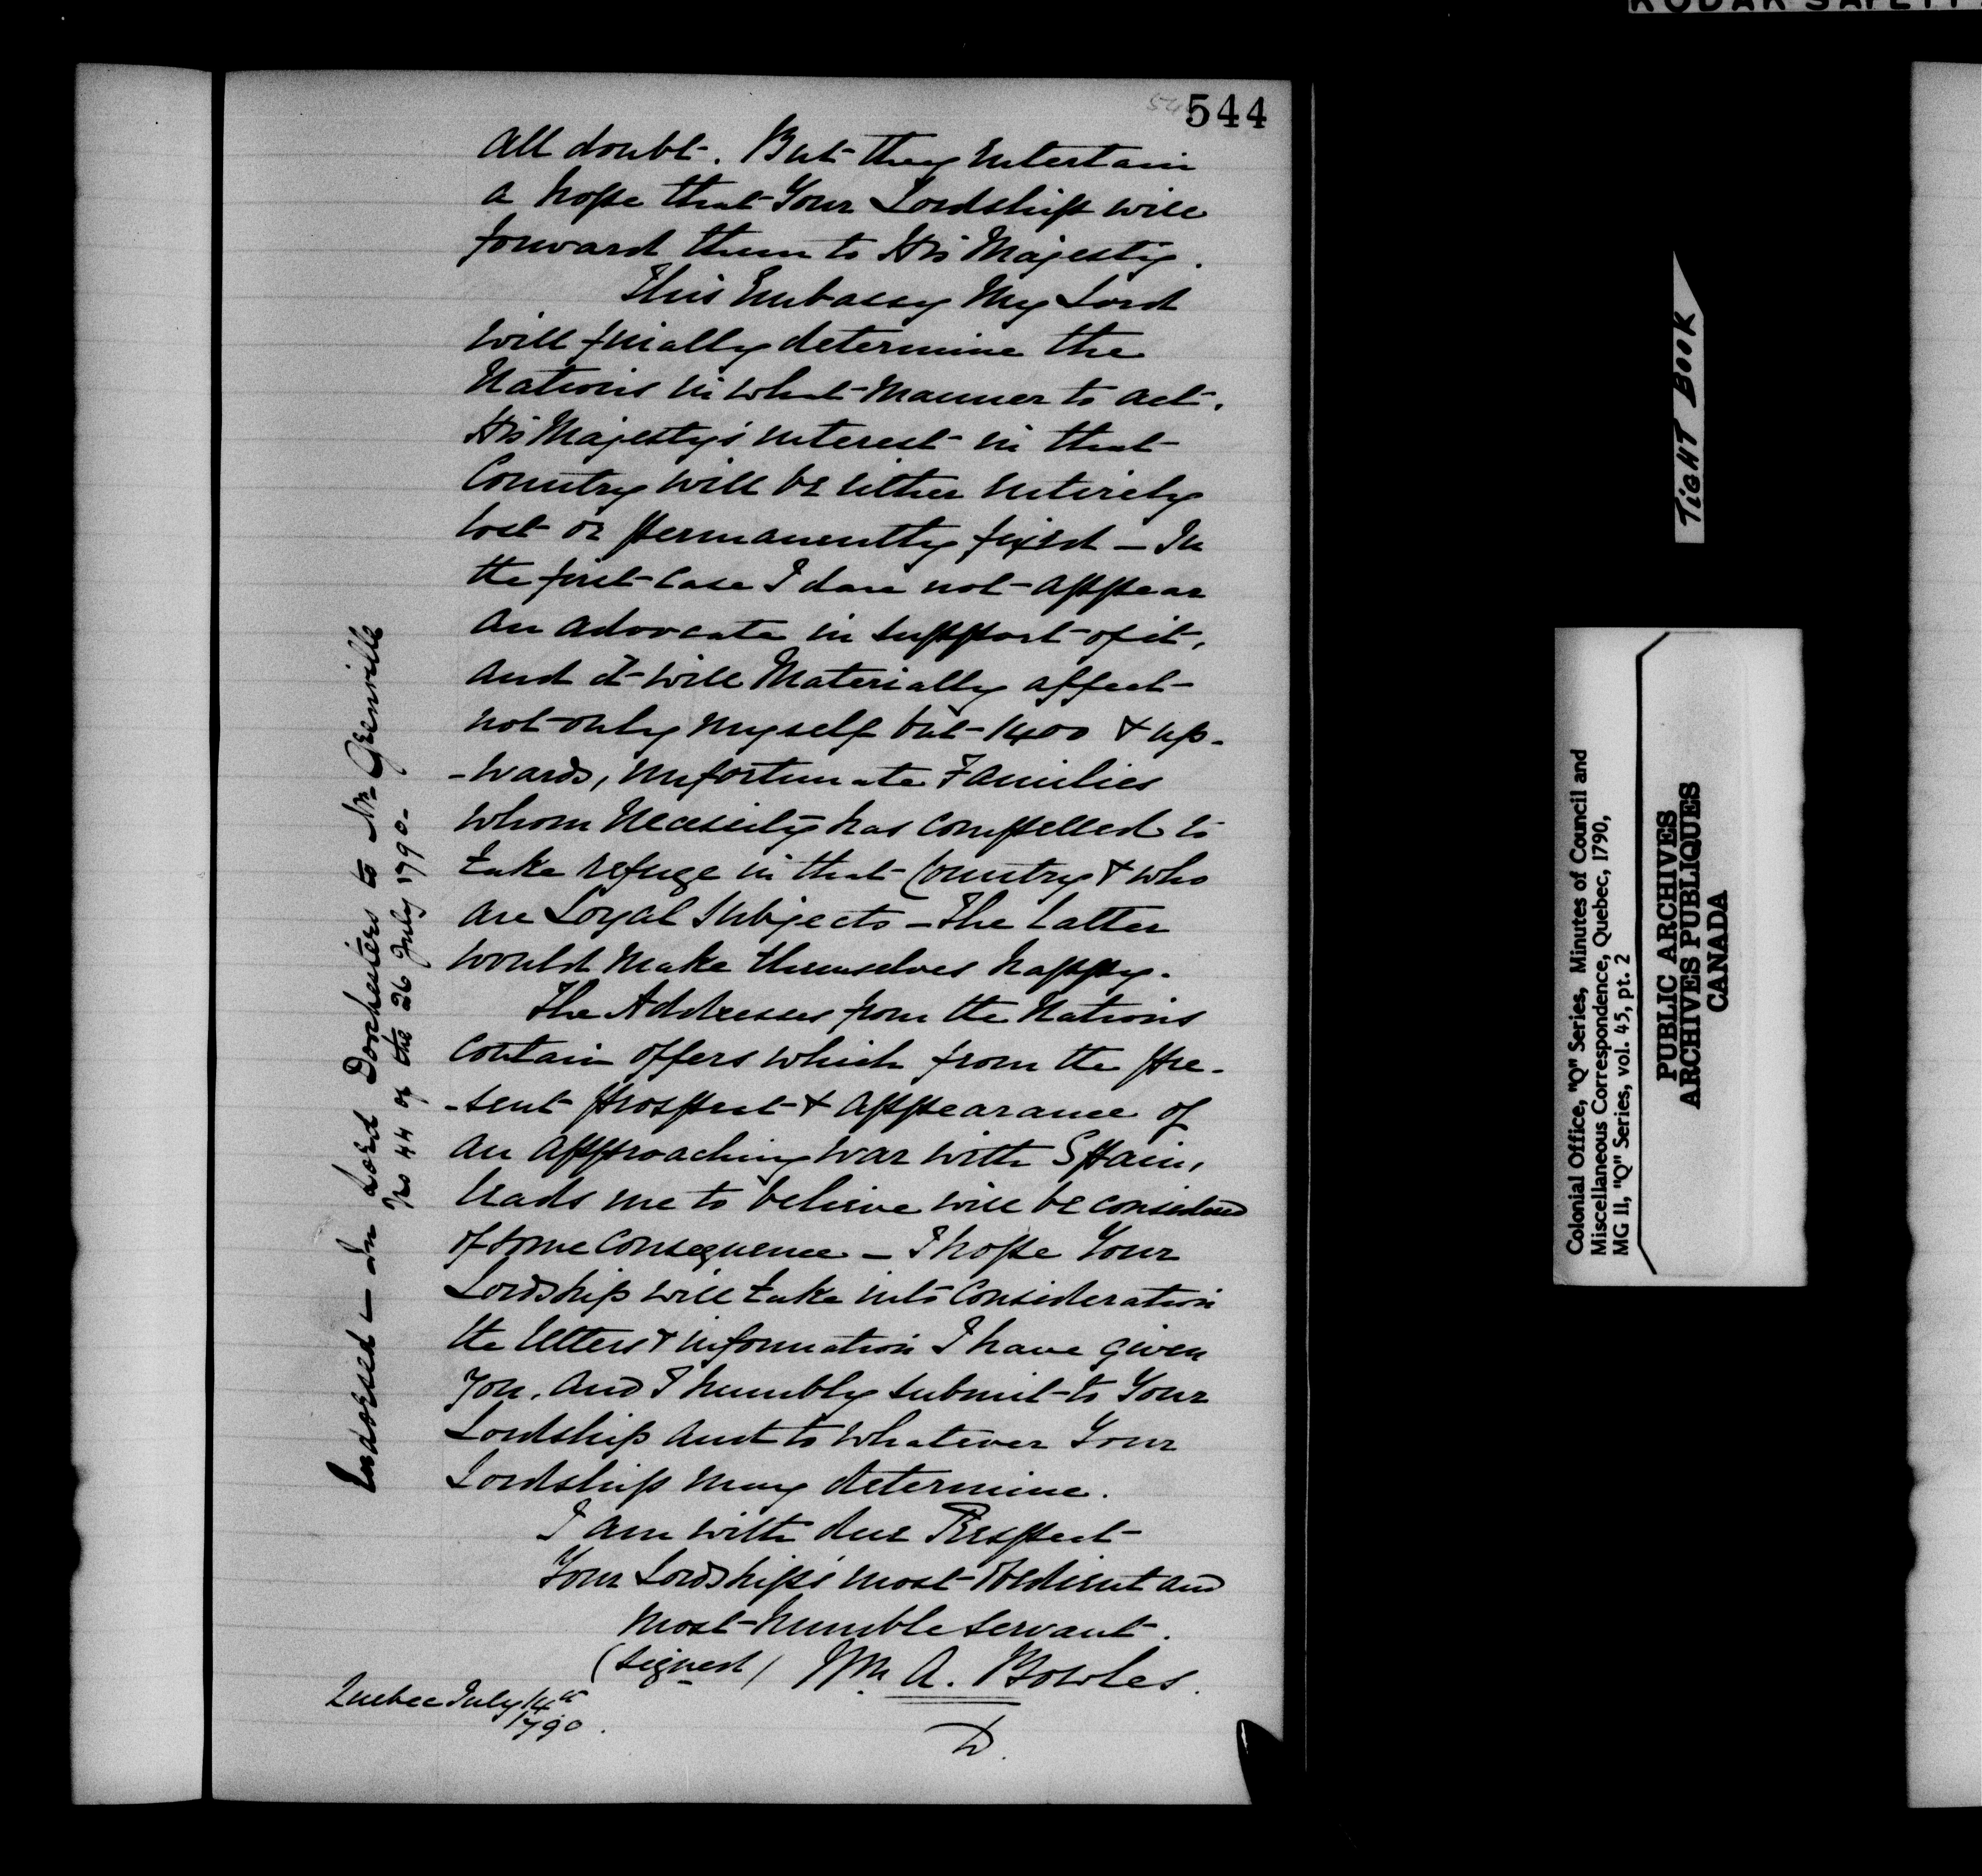 KODAK SAFETY
544
all doubt. But they Entertain
a hope that Your Lordship will
forward them to His Majesty.
This Embassy My Lord
will finally determine the
Nations in what manner to act.
His Majesty's interest in that
Country will be either entirely
lost or permanently fixed – In
the first case I dare not appear
an advocate in support of it,
and it will Materially affect
not only myself but 1400 & up-
-wards, unfortunate Families
whom Necessity has compelled to
take refuge in that Country & who
are Loyal Subjects – The latter
would make themselves happy.
The Addresses from the Nations
contain offers which from the pre-
-sent prospect & appearance of
an approaching war with Spain,
leads me to believe will be considered
of some consequence – I hope Your
Lordship will take into Consideration
the letters & information I have given
you. And I humbly submit to Your
Lordship and to whatever Your
Lordship may determine.
I am with due Respect
Your Lordship's most Obedient and
most humble servant.
(signed) Wm. A. Bowles.
Quebec July 14th
1790.
D.
Endorsed – In Lord Dorchester's to Mr Grenville
No 44 of the 26 July 1790-
TIGHT BOOK
Colonial Office, "Q" Series, Minutes of Council and
Miscellaneous Correspondence, Quebec, 1790,
MG 11, "Q" Series, vol. 45, pt. 2
PUBLIC ARCHIVES
ARCHIVES PUBLIQUES
CANADA